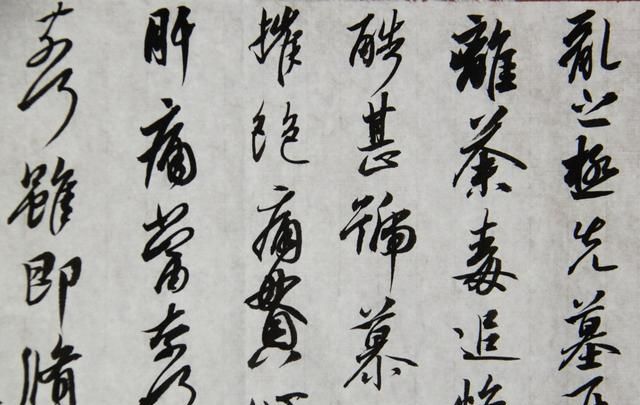 亂之極先墓
離荼毒追
酷甚號慕
摧絕痛貫
肝痛當奈
奈何雖即脩